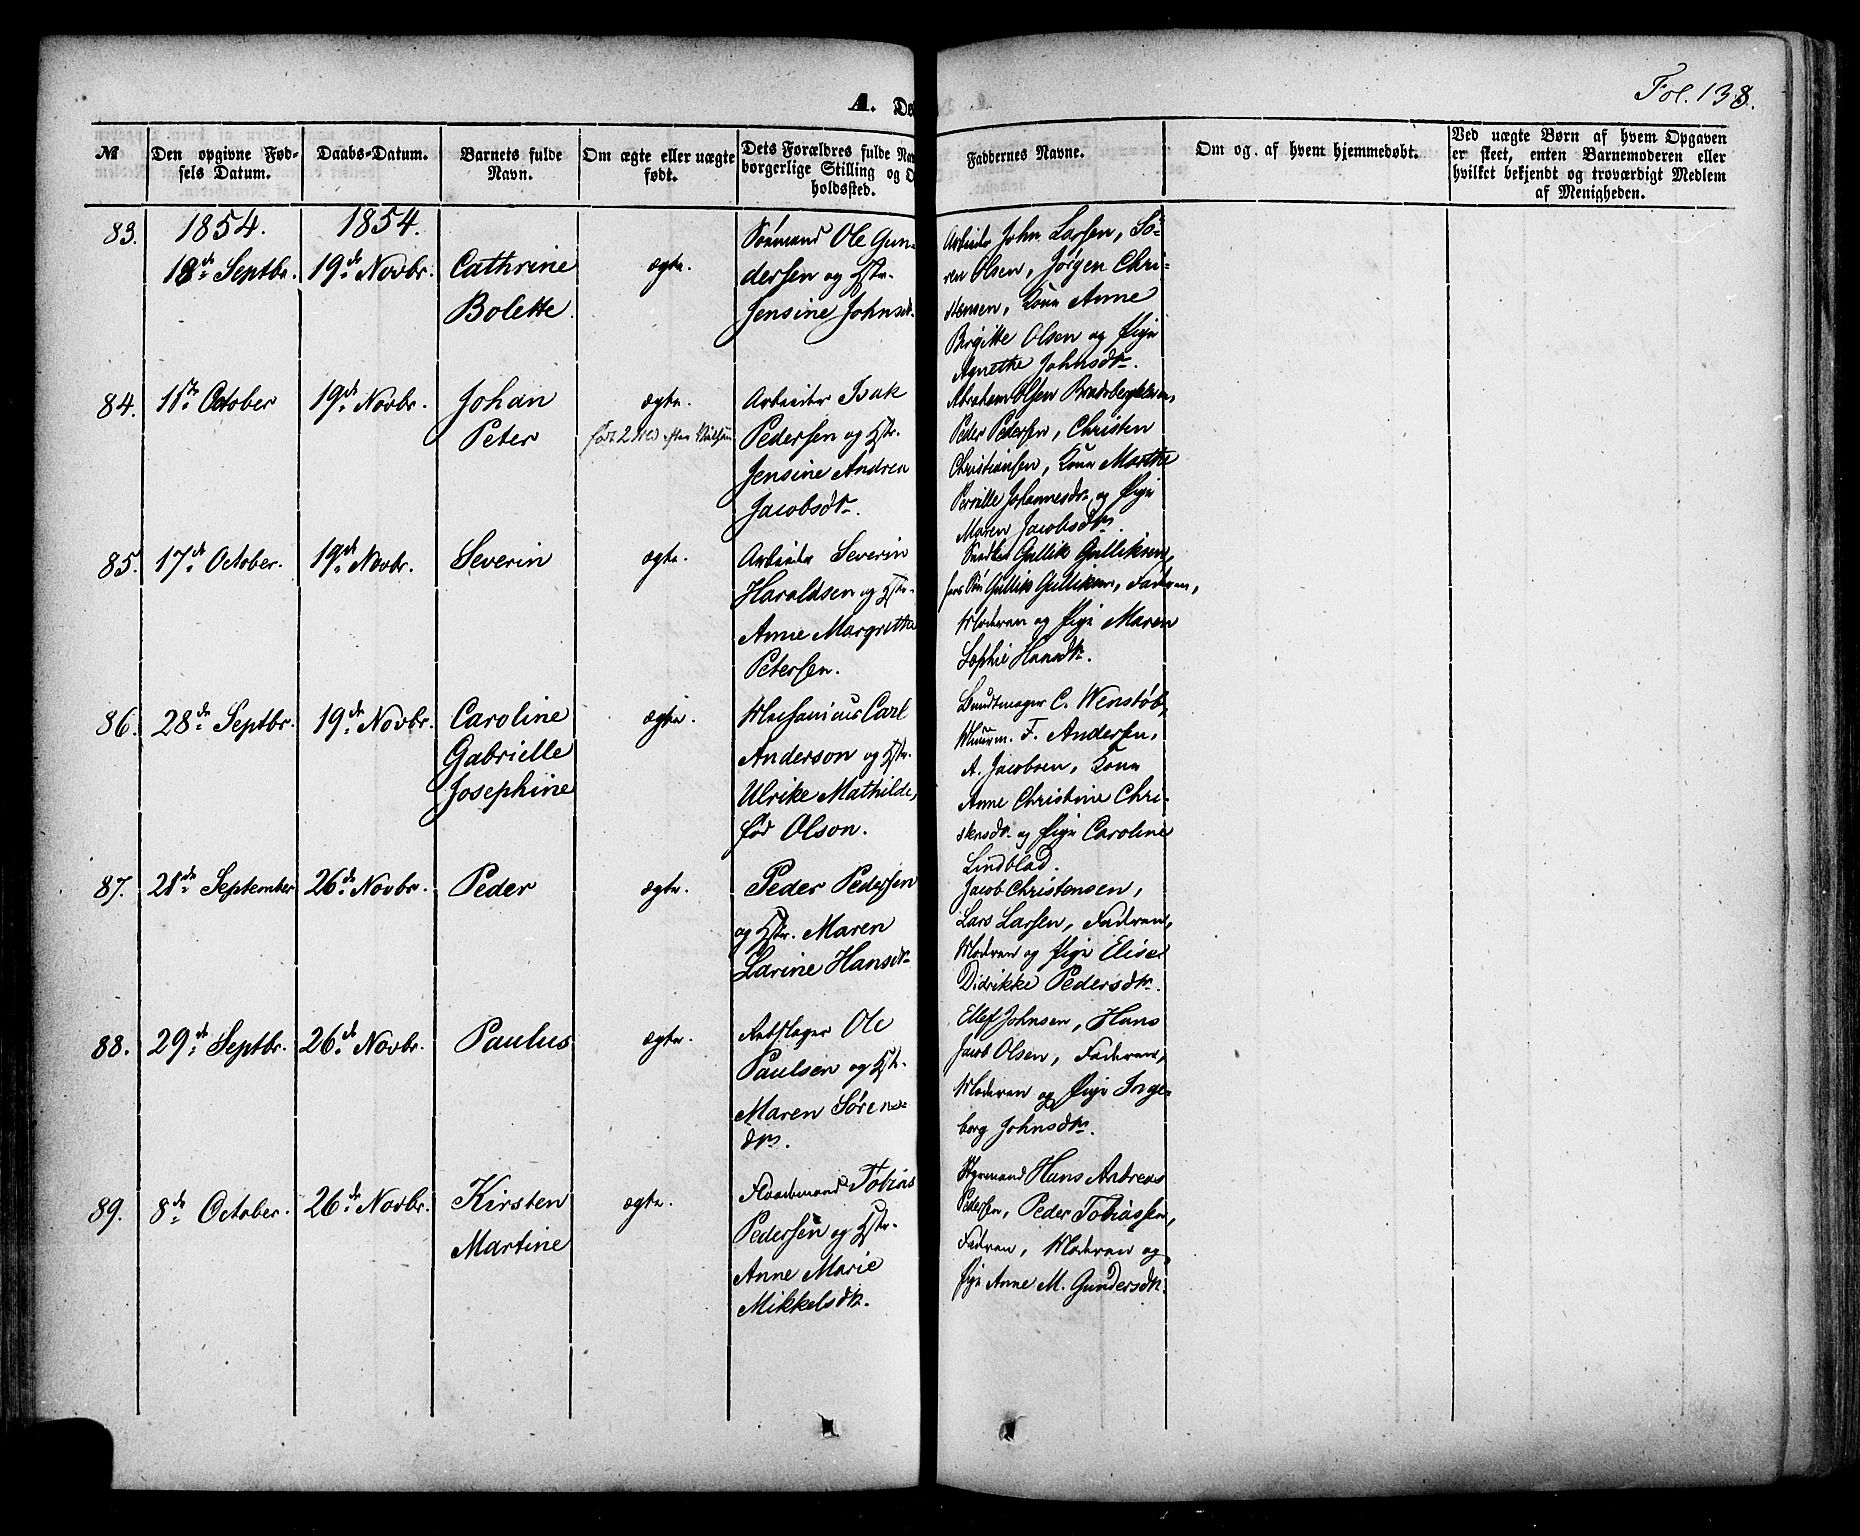 Fol. 138.
A. De
No
Den opgivne Fød-
sels Datum.
Daabs-Datum.
Barnets fulde
Navn.
Om ægte eller uægte
født.
Dets Forældres fulde Na
borgerlige Stilling og O
holdssted.
Faddernes Navne.
Om og af hvem hjemmedøbt.
Ved uægte Børn af hvem Opgaven
er skeet, enten Barnemoderen eller
hvilket bekjendt og troværdigt Medlem
af Menigheden.
83.
1854.
18de Septbr.
1854.
19de Novbr.
Cathrine
Bolette.
ægte.
Sømand Ole Gun-
dersen og Hstr.
Jensine Johnsdtr.
Arbeider John Larsen, Sö-
ren Olsen, Jörgen Chri-
stensen, Kone Anne
Birgitte Olsen og Pige
Agnethe Johnsdtr.
84.
October
19de Novbr.
Johan
Peter
ægte.
født 2
Arbeider Isak
Pedersen og Hstr.
Jensine Andrea
Jacobsdtr.
Abraham Olsen
Peder Pedersen, Christen
Christiansen, Kone Marthe
Pernille Johannesdtr. og Pige
Maren Jacobsdtr.
85.
17de October.
19de Novbr.
Severin
ægte.
Arbeider Severin
Haraldsen og Hstr.
Anne Margrethe
Petersen.
Snedker Gullik Gulliksen,
hans Søn Gullik Gulliksen, Faderen,
Moderen og Pige Maren
Sophie Hansdtr.
86.
28de Septbr.
19de Novbr.
Caroline
Gabrielle
Josephine
ægte.
Mechanicus Carl
Anderson og Hstr.
Ulrike Mathilde,
fød Olson.
Bundtmager C. Wenstøb,
Muurm. F. Andersen,
A. Jacobsen, Kone
Anne Christine Chri-
stensdtr. og Pige Caroline
Lindblad.
87.
28de September
26de Novbr.
Peder
ægte.
Peder Pedersen
og Hstr. Maren
Larine Hansdtr.
Jacob Christensen,
Lars Larsen, Faderen,
Moderen og Pige Elise
Didrikke Pedersdtr.
88.
29de Septbr.
26de Novbr.
Paulus
ægte.
Rebslager Ole
Paulsen og Hstr.
Maren Sörens-
dtr.
Ellef Johnsen, Hans
Jacob Olsen, Faderen,
Moderen og Pige Inge-
borg Johnsdtr.
89.
8de October.
26de Novbr.
Kirsten
Martine
ægte.
Tobias
Pedersen og Hstr.
Anne Marie
Mikkelsdtr.
Styrmand Hans Andreas
Pedersen, Peder Tobiassen,
Faderen, Moderen og
Pige Anne M. Gundersdtr.